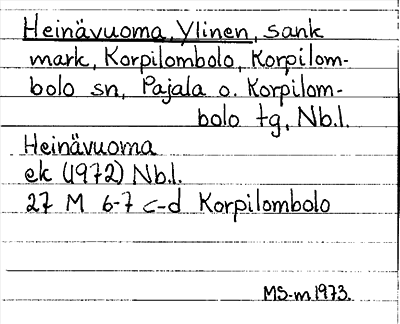 Heinävuoma, Ylinen, sank
mark, Korpilombolo, Korpilom-
bolo sn, Pajala o. Korpilom-
bolo tg, Nb.l.
Heinävuoma
ek (1972) Nb.l.
27 M 6-7 c-d Korpilombolo
MS-m 1973.